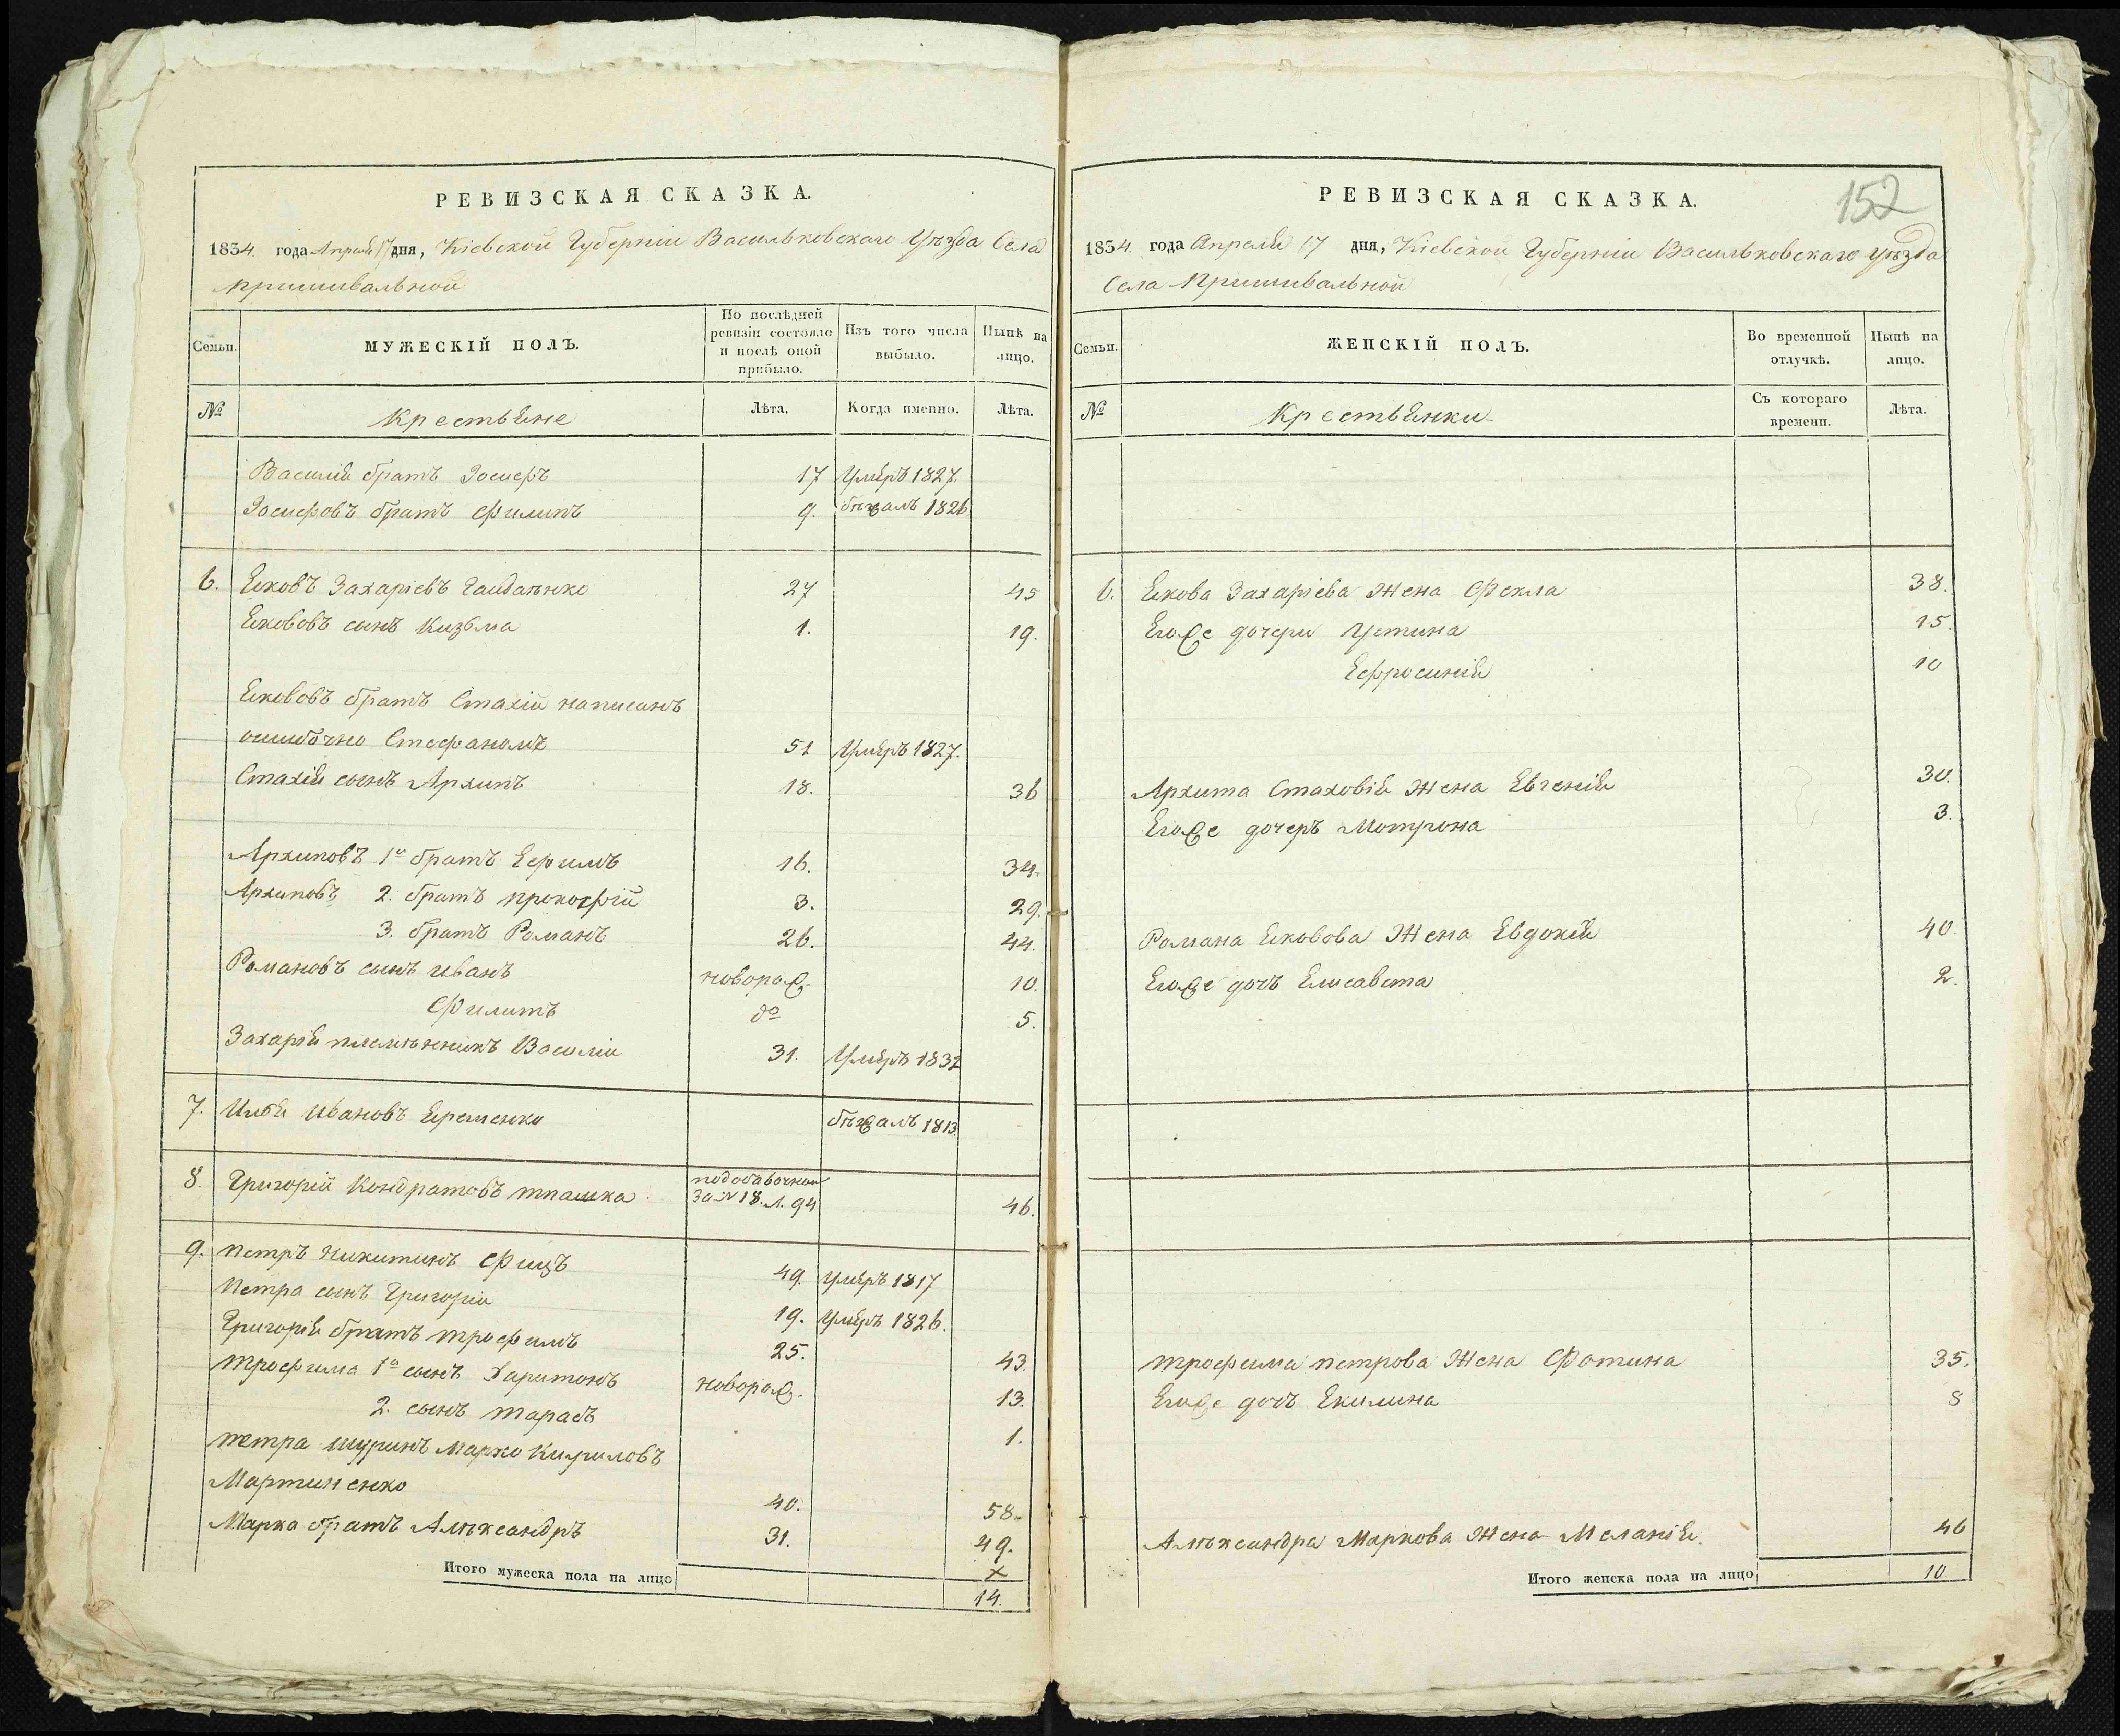 РЕВИЗСКАЯ СКАЗКА.
1834. года Апреля 17 дня, Кіевской Губерніи Васильковскаго Уѣзда Села
Пришивальной
Семьи.
МУЖЕСКІЙ ПОЛЪ.
По послѣдней ревизіи состояло и послѣ оной прибыло.
Изъ того числа выбыло.
Нынѣ на лицо.
№
Крестьяне
Лѣта.
Когда именно.
Лѣта.
Василія братъ Іосифъ 17 Умеръ 1827.
Іосифовъ братъ Филипъ 9. бѣжалъ 1826
6. Яковъ Захаріевъ Гайдаѣнко 27 45
Якововъ сынъ Кизьма 1. 19.
Якововъ братъ Стахій написанъ
ошибочно Стефаномъ 51 Умеръ 1827.
Стахія сынъ Архипъ 18. 36
Архиповъ 1й братъ Ефимъ 16. 34.
Архиповъ 2. братъ Прокофій 3. 29.
3. братъ Романъ 26. 44.
Романовъ сынъ Иванъ новорож. 10.
Филипъ до 5.
Захарія племѣнникъ Василій 31. Умеръ 1832
7. Илья Ивановъ Яременко бѣжалъ 1813
8. Григорій Кондратовъ Тпашка подобавочной За № 18. л. 94 46.
9. Петръ Никитинъ Фицъ 49. Умеръ 1817
Петра сынъ Григорій 19. Умеръ 1826.
Григорія братъ Трофимъ 25. 43.
Трофима 1й сынъ Харитонъ новорож. 13.
2. сынъ Тарасъ 1.
Петра шуринъ Марко Кириловъ
Мартиненко 40. 58.
Марка братъ Алѣксандръ 31. 49.
Итого мужеска пола на лицо 14.
152
РЕВИЗСКАЯ СКАЗКА.
1834. года Апреля 17 дня, Кіевской Губерніи Васильковскаго Уѣзда
Села Пришивальной
Семьи.
ЖЕНСКІЙ ПОЛЪ.
Во временной отлучкѣ.
Нынѣ на лицо.
№
Крестьянки
Съ котораго времени.
Лѣта.
6. Якова Захаріева Жена Фекла 38.
Егоже дочери Устина 15.
Ефросинія 10
Архипа Стаховія Жена Евгенія 30.
Егоже дочеръ Мотрона 3.
Романа Яковова Жена Евдокія 40.
Егоже дочъ Елисавета 2.
Трофима Петрова Жена Фотина 35.
Егоже дочъ Екилина 8
Алѣксандра Маркова Жена Меланія. 46
Итого женска пола на лицо 10.